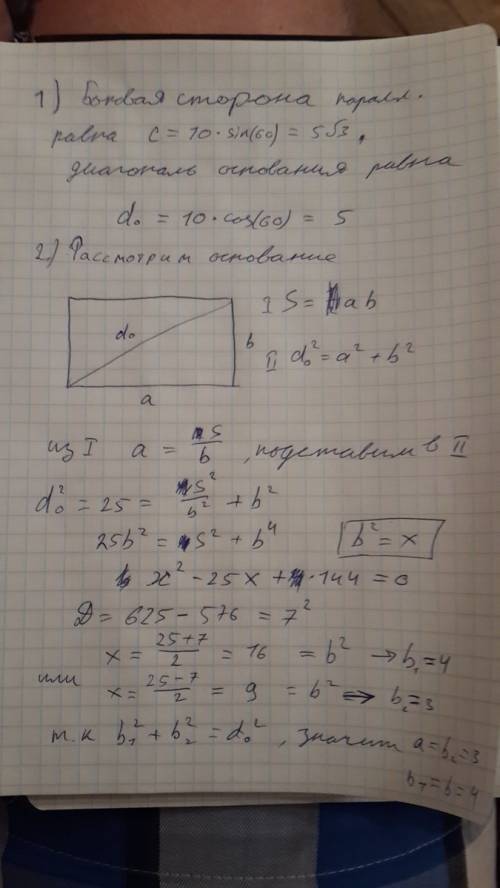 1) Боковая сторона паралл.
равна c = 10·sin(60) = 5√3,
диагональ основания равна
d₀ = 10·cos(60) = 5
2.) Рассмотрим основание
I S = ab
d₀
b
II d₀² = a² + b²
a
из I a = S/b, подставим в II
d₀² = 25 = S²/b² + b²
25b² = S² + b⁴
b² = x
x² - 25x + 144 = 0
D = 625 - 576 = 7²
x = (25+7)/2 = 16 = b² → b₁ = 4
или
x = (25-7)/2 = 9 = b² ⇒ b₂ = 3
т.к b₁² + b₂² = d₀², значит a = b₂ = 3
b₁ = b = 4